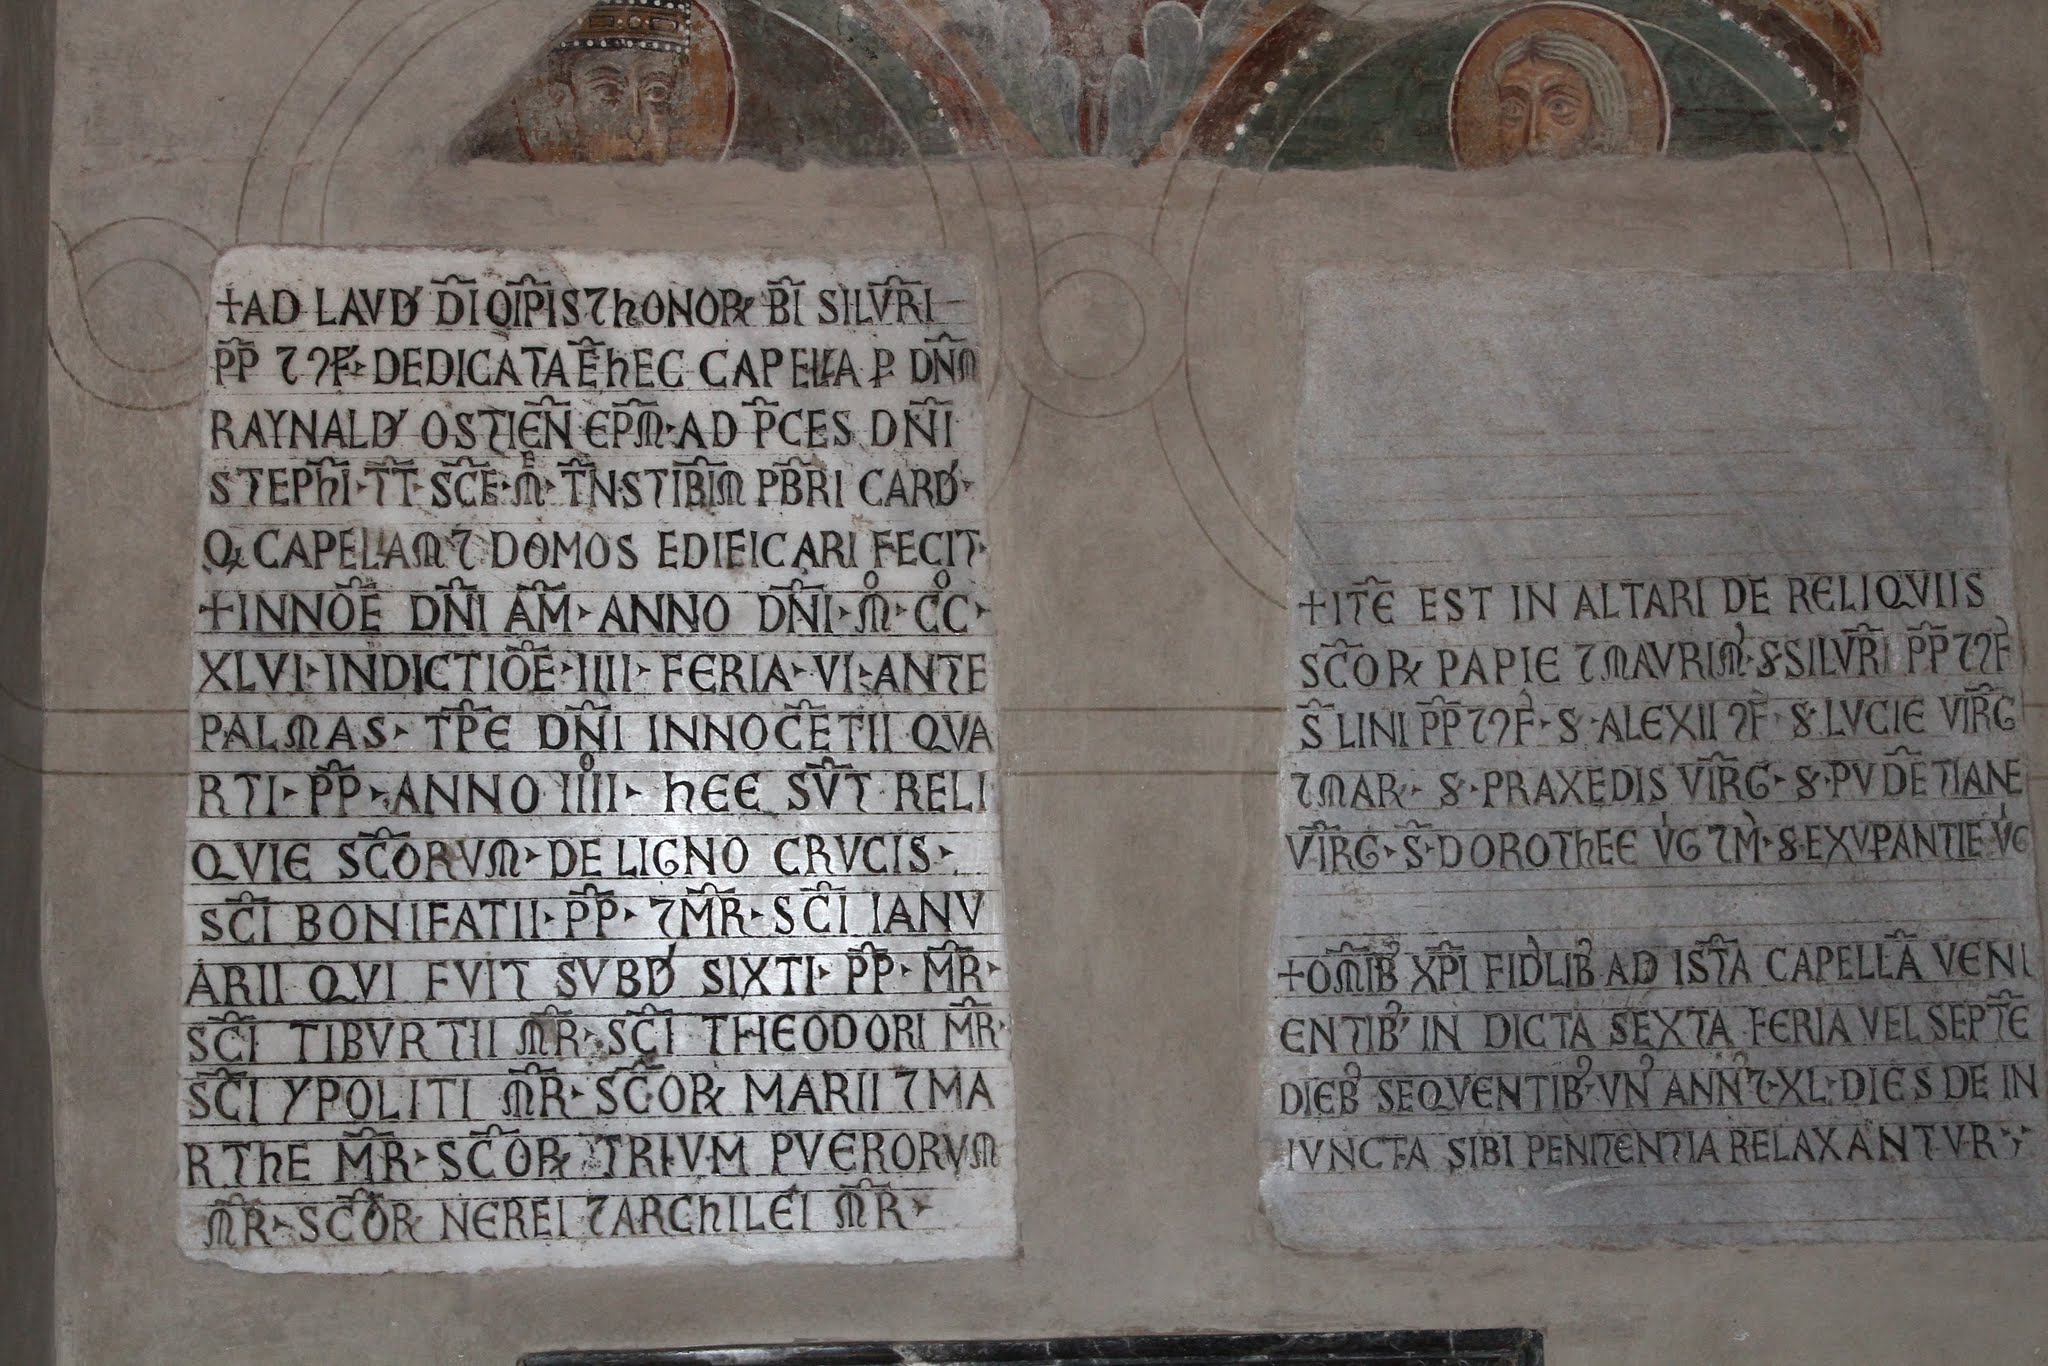 +AD LAVD' D̅I O̅I̅P̅IS ⁊ hONOꝶ B̅I SILV̅R̅I
P̅P̅ ⁊ ꝯF· DEDICATA E̅ hEC CAPELLA P̱ DN̅M
RAYNALD' OSTIEN̅ EP̅M· AD P̅CES DN̅I
STEPh̅I· T̅T̅· SC̅E· M̊· T̅N̅STIBI̅M PB̅RI CARD'·
Qꝶ CAPELAM ⁊ DOMOS EDIFICARI FECIT·
+INNO̅E DN̅I AM̅· ANNO DN̅I· M̊· C̊C̊·
XLVI· INDICTIO̅E· IIII· FERIA· VI· ANTE
PALMAS· TP̅E DN̅I INNOCE̅TII QVA
RTI· P̅P̅· ANNO IIII̊· hEE SV̅T RELI
QVIE SC̅ORVM· DE LIGNO CRVCIS·
SC̅I BONIFATII· P̅P̅· ⁊ M̅R̅· SC̅I IANV
ARII QVI FVIT SVBD' SIXTI· P̅P̅· M̅R̅·
SC̅I TIBVRTII M̅R̅· SC̅I THEODORI M̅R̅·
SC̅I YPOLITI M̅R̅· SC̅Oꝶ MARII ⁊ MA
RThE M̅R̅· SC̅Oꝶ TRIVM PVERORVM
M̅R̅· SC̅Oꝶ NEREI ⁊ ARChILEI M̅R̅·
+ITE̅ EST IN ALTARI DE RELIQVIIS
SC̅Oꝶ PAPIE ⁊ MAVRIM'· S· SILV̅R̅I P̅P̅ ⁊ ꝯF'
S̅ LINI P̅P̅ ⁊ ꝯF'· S· ALEXII ꝯF'· S· LVCIE VI̅R̅G
⁊ MAR· S· PRAXEDIS VI̅R̅G· S· PVDE̅TIANE
VI̅R̅G· S̅· DOROThEE V'G ⁊ M'· S· EXVPANTIE V'G
+OM̅IB' XP̅I FID'LIB' AD ISTA̅ CAPELLA̅ VENI
ENTIB' IN DICTA SEXTA FERIA VEL SEPTE̅
DIEB' SEQVENTIB'· VN' ANN' ⁊· XL· DIES DE IN
IVNCTA SIBI PENITENTIA RELAXANTVR·